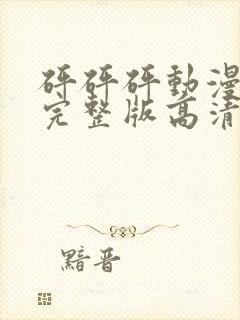 砰砰砰動漫
完整版高清
黯晉